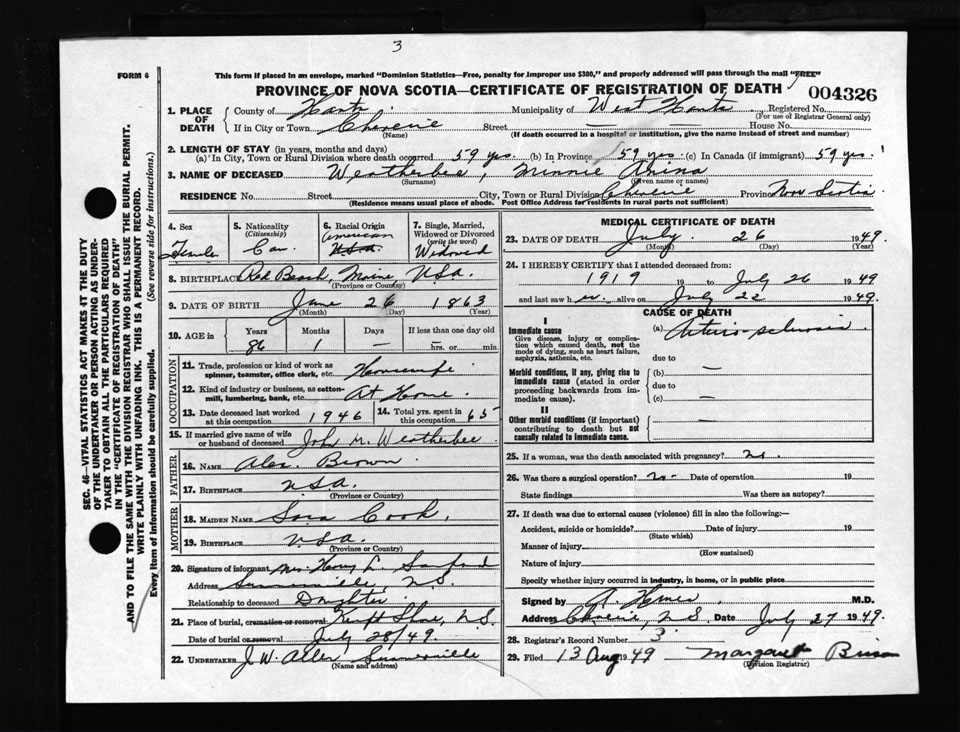 3
FORM 6
This form if placed in an envelope, marked "Dominion Statistics—Free, penalty for improper use $300," and properly addressed will pass through the mail "FREE"
PROVINCE OF NOVA SCOTIA—CERTIFICATE OF REGISTRATION OF DEATH
004326
1. PLACE OF DEATH
County of Hants. Municipality of West Hants Registered No.
(For use of Registrar General only)
If in City or Town Cheverie Street — House No.
(Name) (If death occurred in a hospital or institution, give the name instead of street and number)
2. LENGTH OF STAY (in years, months and days)
(a) In City, Town or Rural Division where death occurred 59 yrs (b) In Province 59 yrs. (c) In Canada (if immigrant) 59 yrs.
3. NAME OF DECEASED Weatherbee, Minnie
(Surname) (Given name or names)
RESIDENCE No. Street City, Town or Rural Division Cheverie Province Nova Scotia
(Residence means usual place of abode. Post Office Address for residents in rural parts not sufficient)
4. Sex
Female
5. Nationality
(Citizenship)
Can.
6. Racial Origin
American
U.S.A.
7. Single, Married, Widowed or Divorced
(write the word)
Widowed
8. BIRTHPLACE Red Beach, Maine USA.
(Province or Country)
9. DATE OF BIRTH June 26 1863
(Month) (Day) (Year)
10. AGE in
Years Months Days If less than one day old
86 1 — hrs. or min.
OCCUPATION
11. Trade, profession or kind of work as spinner, teamster, office clerk, etc. Housewife
12. Kind of industry or business, as cotton-mill, lumbering, bank, etc. At Home
13. Date deceased last worked at this occupation 1946
14. Total yrs. spent in this occupation 65
15. If married give name of wife or husband of deceased John M. Weatherbee
FATHER
16. NAME Alex. Brown
17. BIRTHPLACE USA.
(Province or Country)
MOTHER
18. MAIDEN NAME Sara Cook,
19. BIRTHPLACE USA.
(Province or Country)
20. Signature of informant Mrs Henry L. Sanford
Address Summerville, N.S.
Relationship to deceased Daughter
21. Place of burial, cremation or removal Kempt Shore, N.S.
Date of burial or removal July 28/49.
22. UNDERTAKER J. W. Allen Summerville
(Name and address)
MEDICAL CERTIFICATE OF DEATH
23. DATE OF DEATH July. 26 1949.
(Month) (Day) (Year)
24. I HEREBY CERTIFY that I attended deceased from:
1919 19 to July 26 1949
and last saw her alive on July 22 1949.
CAUSE OF DEATH
I
Immediate cause
Give disease, injury or complication which caused death, not the mode of dying, such as heart failure, asphyxia, asthenia, etc.
(a) Arterio-sclerosis.
due to
Morbid conditions, if any, giving rise to immediate cause (stated in order proceeding backwards from immediate cause).
(b) —
due to
(c) —
II
Other morbid conditions (if important) contributing to death but not causally related to immediate cause.
—
25. If a woman, was the death associated with pregnancy? no.
26. Was there a surgical operation? no. Date of operation 19
State findings Was there an autopsy?
27. If death was due to external causes (violence) fill in also the following:—
Accident, suicide or homicide? Date of injury 19
(State which)
Manner of injury
(How sustained)
Nature of injury
Specify whether injury occurred in industry, in home, or in public place
Signed by M.D.
Address Cheverie, N.S. Date July 27 1949.
28. Registrar's Record Number 3.
29. Filed 13 Aug 1949 Margaret
(Division Registrar)
SEC. 46—VITAL STATISTICS ACT MAKES IT THE DUTY
OF THE UNDERTAKER OR PERSON ACTING AS UNDER-
TAKER TO OBTAIN ALL THE PARTICULARS REQUIRED
IN THE "CERTIFICATE OF REGISTRATION OF DEATH"
AND TO FILE THE SAME WITH THE DIVISION REGISTRAR WHO SHALL ISSUE THE BURIAL PERMIT.
WRITE PLAINLY WITH UNFADING INK. THIS IS A PERMANENT RECORD.
Every item of information should be carefully supplied. (See reverse side for instructions.)